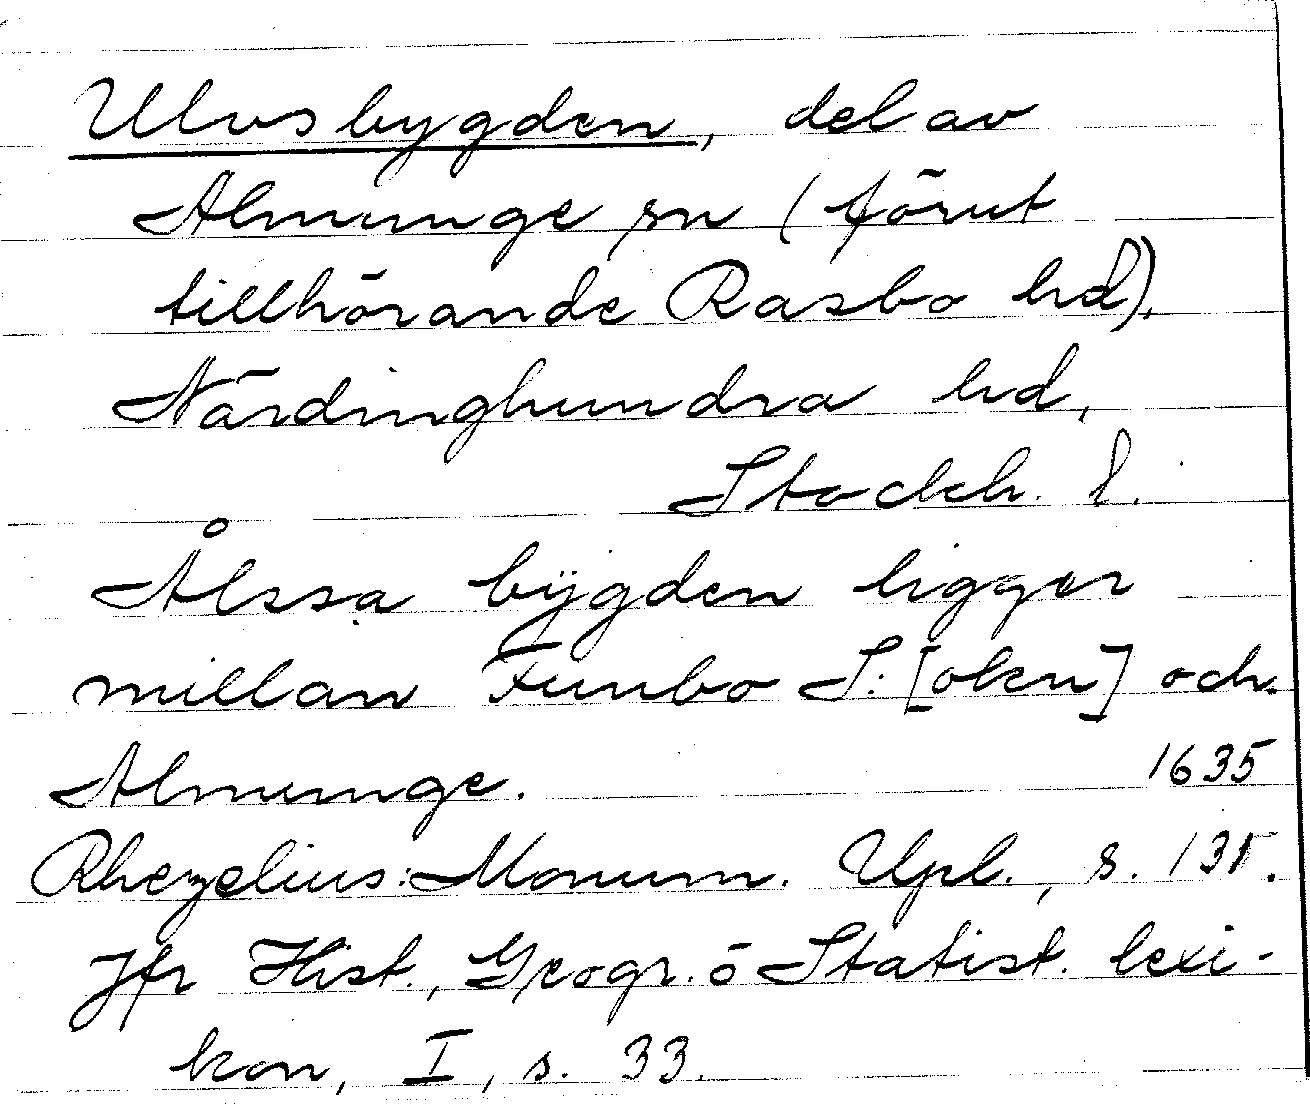 Ulvsbygden, del av
Almunge sn (förut
tillhörande Rasbo hd),
Närdinghundra hd,
Stockh. l.
Ålssa bÿgden ligger
millan Funbo S: [oken] och
Almunge. 1635
Rhezelius: Monum. Upl., s. 131.
Jfr Hist., Geogr. ō Statist. lexi-
kon, I, s. 33.